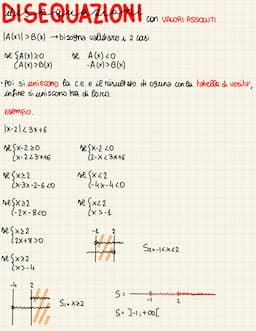 DISEQUAZIONI con VALORI ASSOLUTI
|A(x)| > B(x) → bisogna valutare i 2 casi
se { A(x) ≥ 0 se A(x) < 0
{ A(x) > B(x) -A(x) > B(x)
• Poi si uniscono la c.e. e il risultato di ognuna con la tabella di verità,
infine si uniscono tra di loro.
esempio.
|x-2| < 3x+6
se { x-2 ≥ 0 se { x-2 < 0
{ x-2 < 3x+6 { 2-x < 3x+6
se { x ≥ 2 se { x < 2
{ x-3x-2-6 < 0 { -4x-4 < 0
se { x ≥ 2 { x < 2
{ -2x-8 < 0 { x > -1
se { x ≥ 2 -1 2
{ 2x+8 > 0 S₂ = -1 < x < 2
se { x ≥ 2
{ x > -4
-4 2 S =
S₁ = x ≥ 2 -1 2
S = ]-1; +∞[